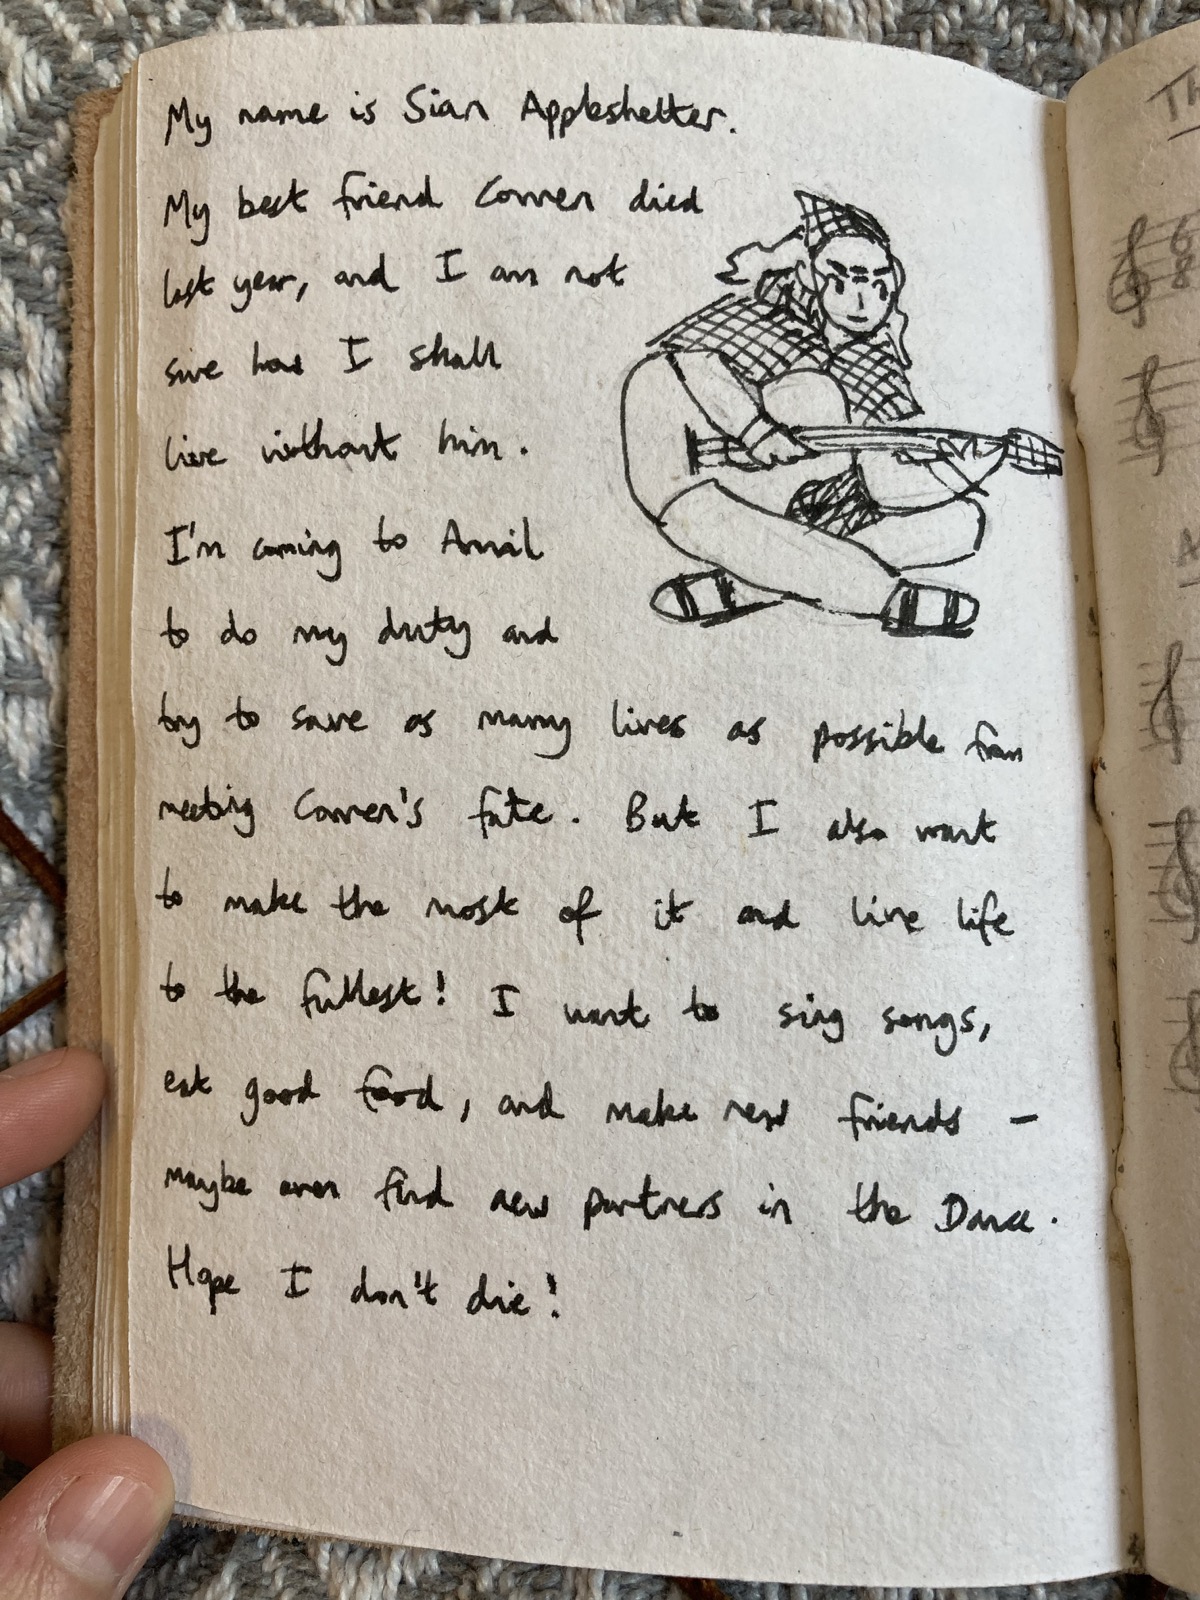 My name is Sian Appleshelter.
My best friend Comen died
last year, and I am not
sure how I shall
live without him.
I'm coming to Anvil
to do my duty and
try to save as many lives as possible from
meeting Comen's fate. But I also want
to make the most of it and live life
to the fullest! I want to sing songs,
eat good food, and make new friends -
maybe even find new partners in the Dance.
Hope I don't die!
Th
A